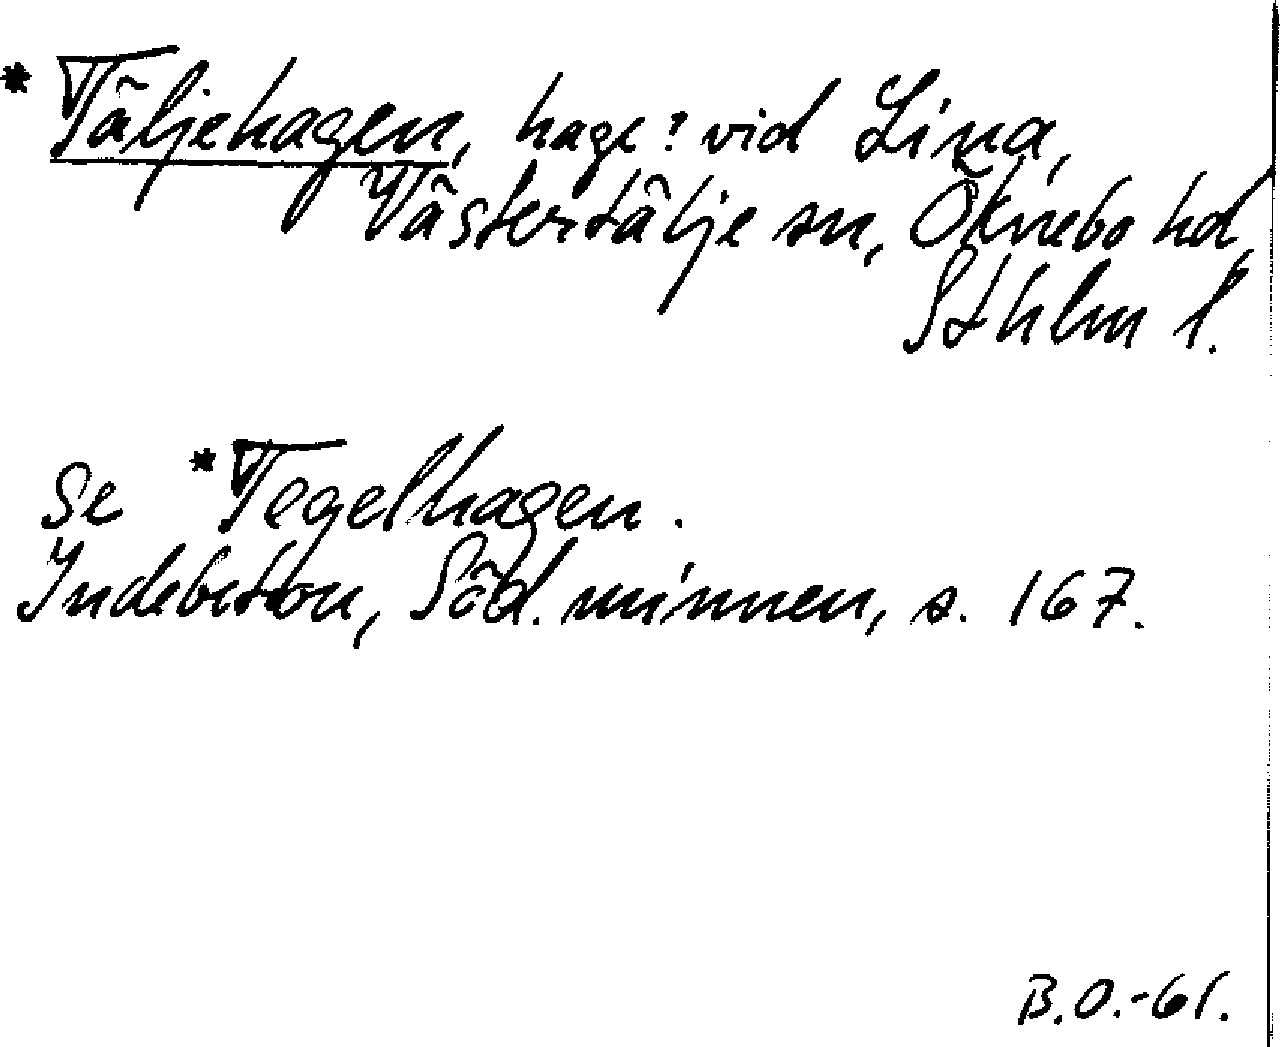 * Täljehagen, hage? vid Lina,
Västertälje sn, Öknebo hd,
Sthlm l.
Se *Tegelhagen.
Indebetou, Söd. minnen, s. 167.
B.O.-61.